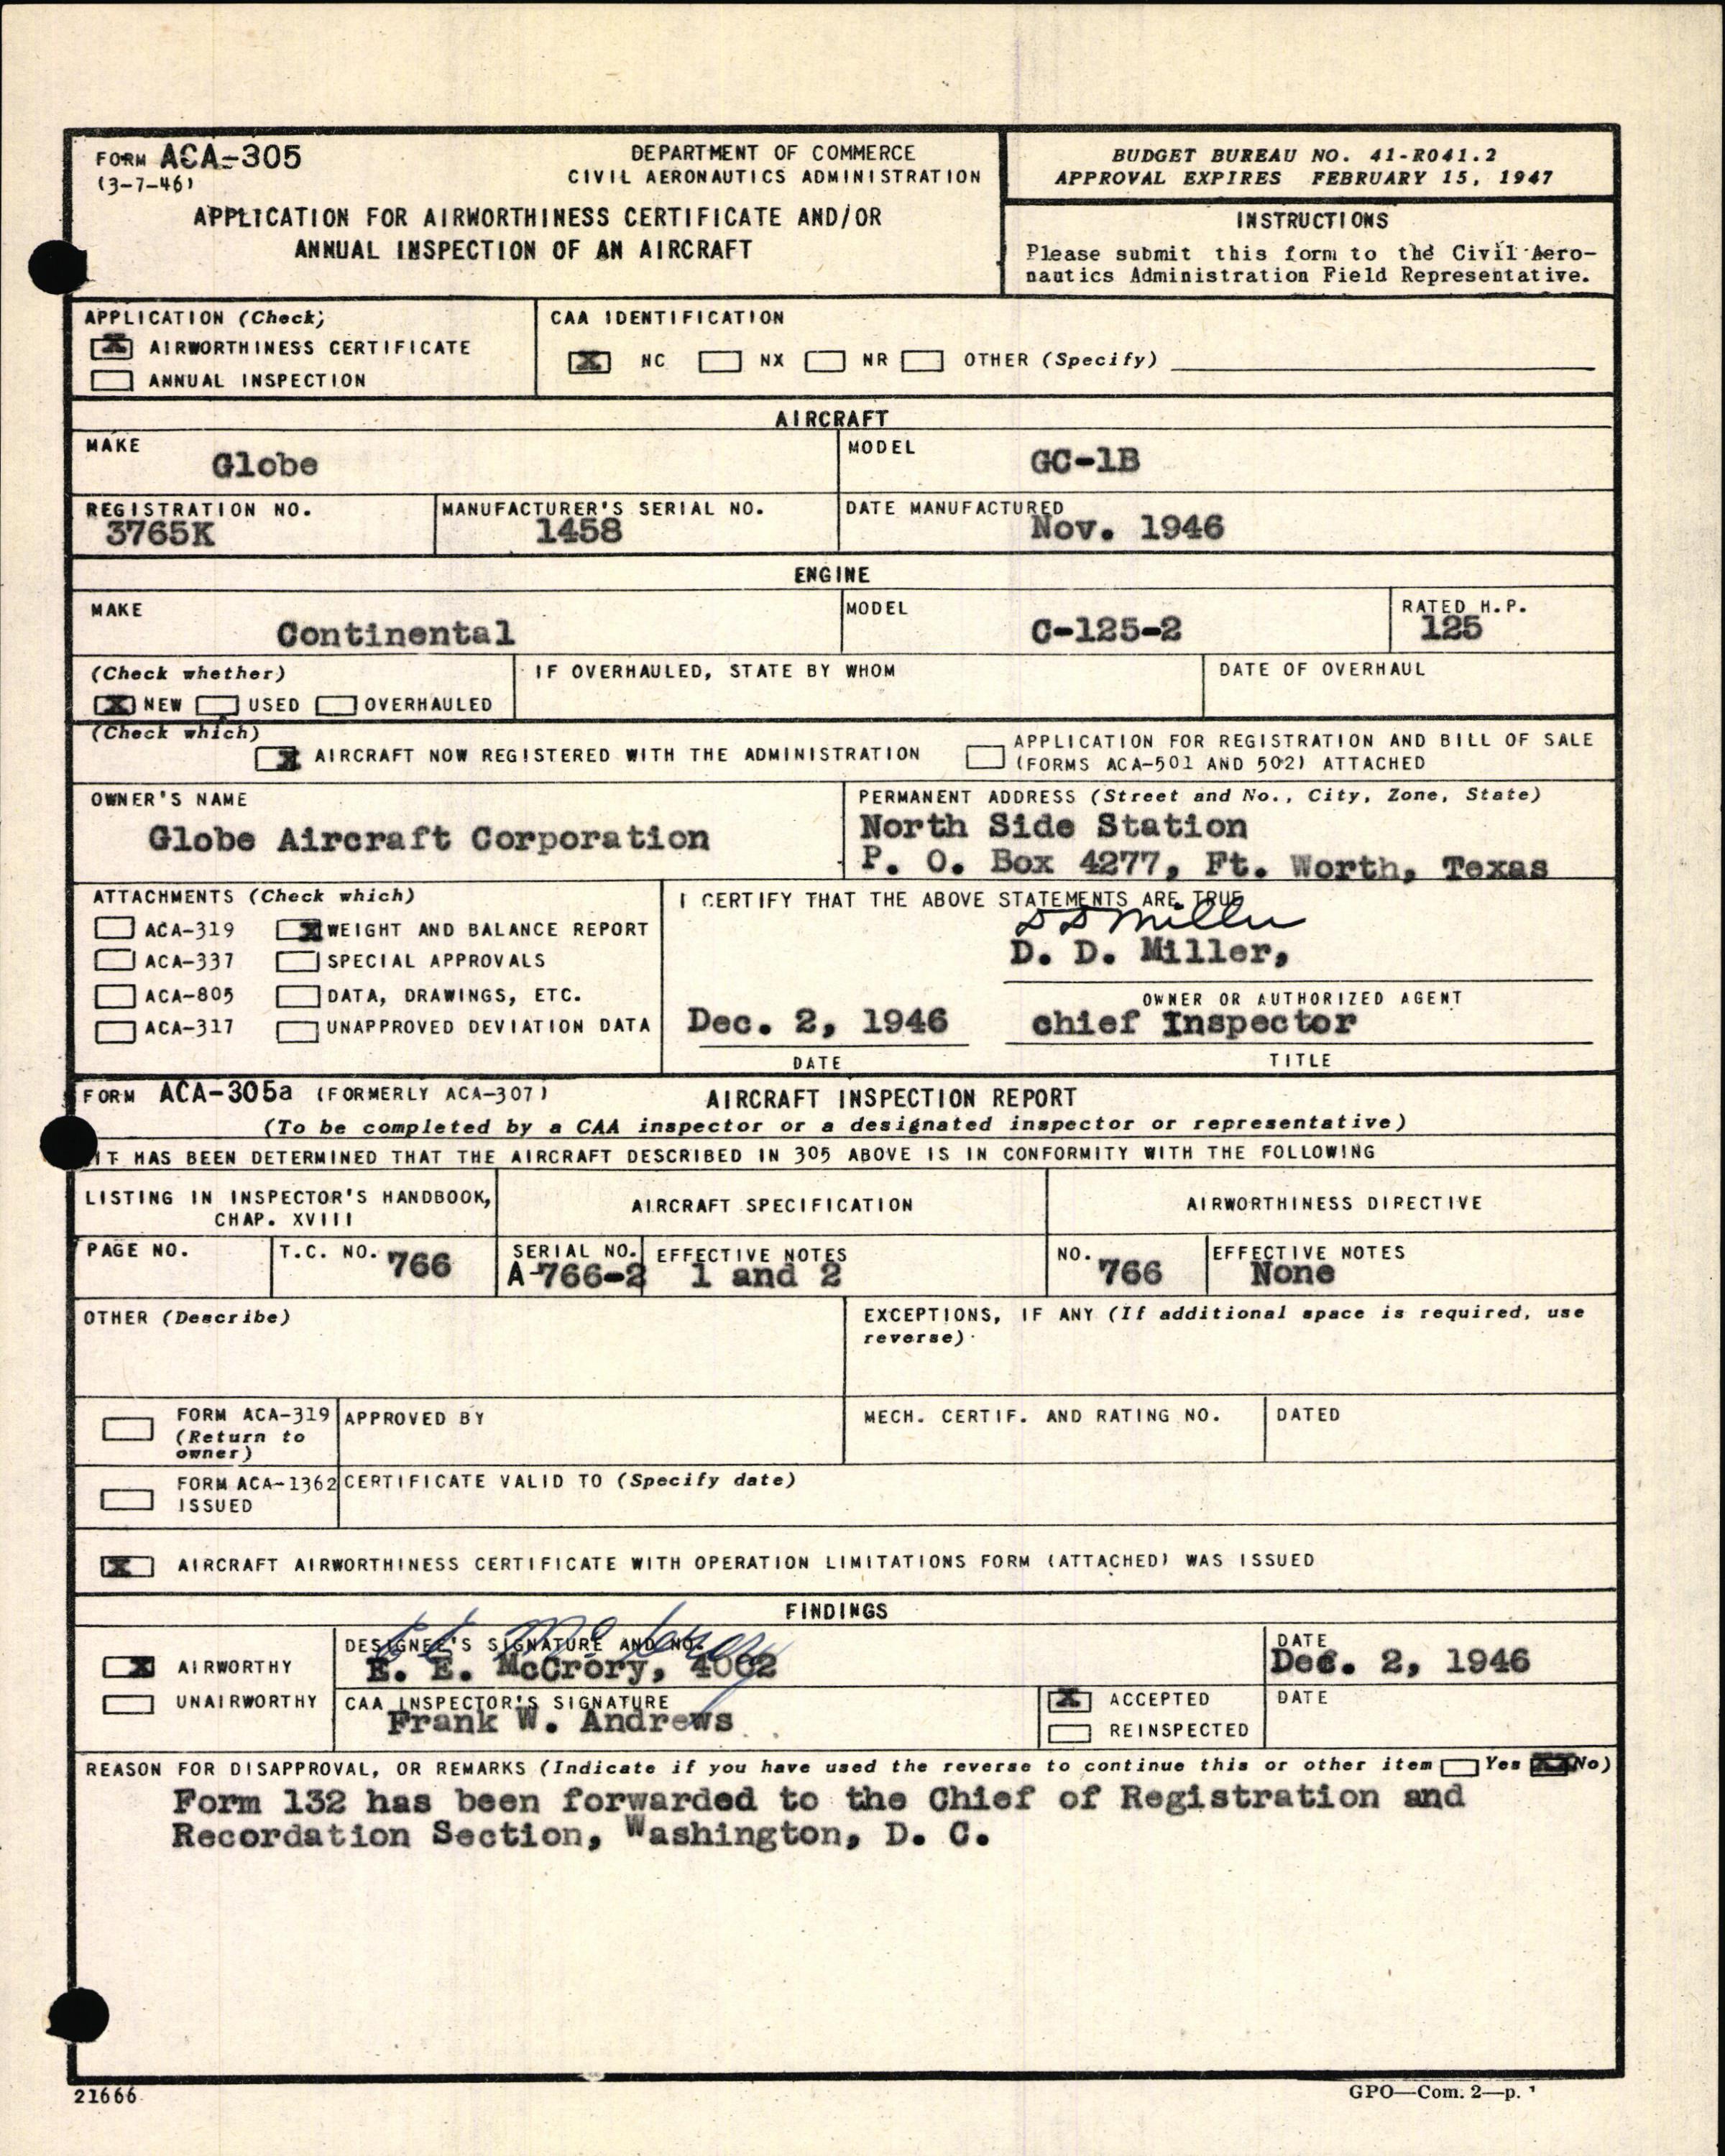 FORM ACA-305
(3-7-46)
DEPARTMENT OF COMMERCE
CIVIL AERONAUTICS ADMINISTRATION
APPLICATION FOR AIRWORTHINESS CERTIFICATE AND/OR
ANNUAL INSPECTION OF AN AIRCRAFT
BUDGET BUREAU NO. 41-R041.2
APPROVAL EXPIRES FEBRUARY 15, 1947
INSTRUCTIONS
Please submit this form to the Civil Aero-
nautics Administration Field Representative.
APPLICATION (Check)
X AIRWORTHINESS CERTIFICATE
ANNUAL INSPECTION
CAA IDENTIFICATION
X NC NX NR OTHER (Specify)
AIRCRAFT
MAKE
Globe
MODEL
GC-1B
REGISTRATION NO.
3765K
MANUFACTURER'S SERIAL NO.
1458
DATE MANUFACTURED
Nov. 1946
ENGINE
MAKE
Continental
MODEL
C-125-2
RATED H.P.
125
(Check whether)
X NEW USED OVERHAULED
IF OVERHAULED, STATE BY WHOM
DATE OF OVERHAUL
(Check which)
X AIRCRAFT NOW REGISTERED WITH THE ADMINISTRATION
APPLICATION FOR REGISTRATION AND BILL OF SALE
(FORMS ACA-501 AND 502) ATTACHED
OWNER'S NAME
Globe Aircraft Corporation
PERMANENT ADDRESS (Street and No., City, Zone, State)
North Side Station
P. O. Box 4277, Ft. Worth, Texas
ATTACHMENTS (Check which)
ACA-319 X WEIGHT AND BALANCE REPORT
ACA-337 SPECIAL APPROVALS
ACA-805 DATA, DRAWINGS, ETC.
ACA-317 UNAPPROVED DEVIATION DATA
I CERTIFY THAT THE ABOVE STATEMENTS ARE TRUE
D D Miller
D. D. Miller,
OWNER OR AUTHORIZED AGENT
Dec. 2, 1946 chief Inspector
DATE TITLE
FORM ACA-305a (FORMERLY ACA-307) AIRCRAFT INSPECTION REPORT
(To be completed by a CAA inspector or a designated inspector or representative)
IT HAS BEEN DETERMINED THAT THE AIRCRAFT DESCRIBED IN 305 ABOVE IS IN CONFORMITY WITH THE FOLLOWING
LISTING IN INSPECTOR'S HANDBOOK,
CHAP. XVIII
AIRCRAFT SPECIFICATION
AIRWORTHINESS DIRECTIVE
PAGE NO.
T.C. NO. 766
SERIAL NO.
A-766-2
EFFECTIVE NOTES
1 and 2
NO.
766
EFFECTIVE NOTES
None
OTHER (Describe)
EXCEPTIONS, IF ANY (If additional space is required, use
reverse)
FORM ACA-319
(Return to
owner)
APPROVED BY
MECH. CERTIF. AND RATING NO.
DATED
FORM ACA-1362
ISSUED
CERTIFICATE VALID TO (Specify date)
X AIRCRAFT AIRWORTHINESS CERTIFICATE WITH OPERATION LIMITATIONS FORM (ATTACHED) WAS ISSUED
FINDINGS
X AIRWORTHY
UNAIRWORTHY
DESIGNEE'S SIGNATURE AND NO.
E E McCrory
E. E. McCrory, 4062
DATE
Dec. 2, 1946
CAA INSPECTOR'S SIGNATURE
Frank W. Andrews
X ACCEPTED
REINSPECTED
DATE
REASON FOR DISAPPROVAL, OR REMARKS (Indicate if you have used the reverse to continue this or other item Yes XX No)
Form 132 has been forwarded to the Chief of Registration and
Recordation Section, Washington, D. C.
21666
GPO—Com. 2—p.